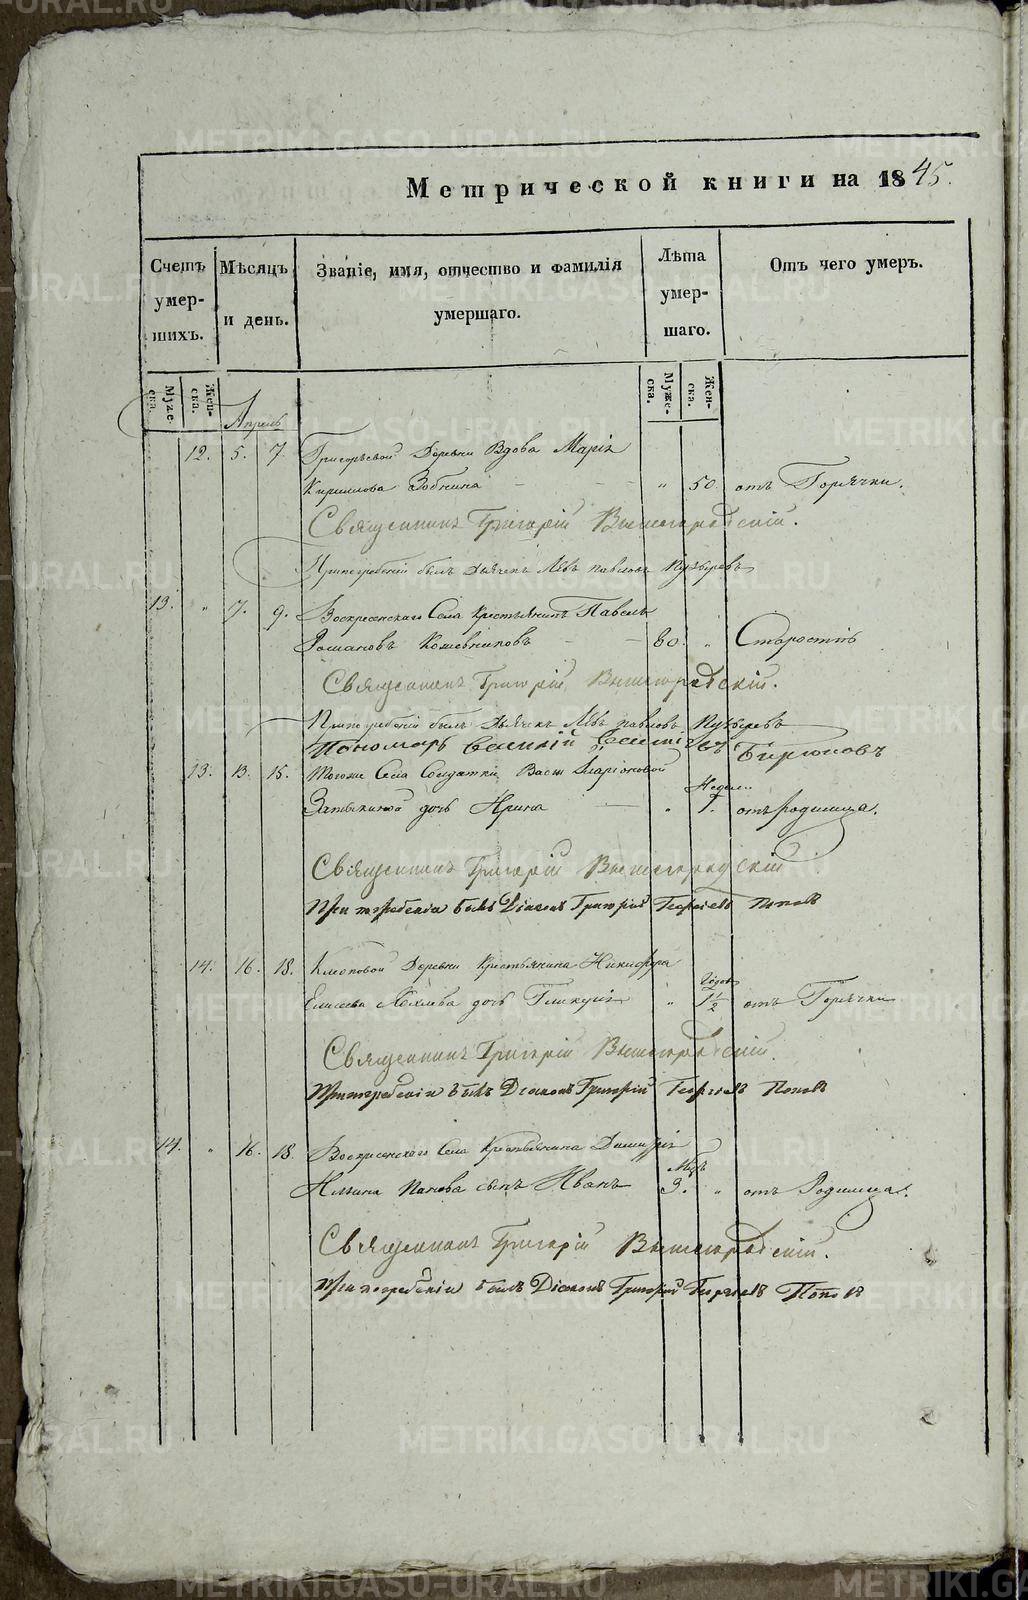 Метрической книги на 1845.
Счетъ умер-шихъ.
Мѣсяцъ и день.
Званіе, имя, отчество и фамилія умершаго.
Лѣта умер-шаго.
Отъ чего умеръ.
Муже-ска. Жен-ска.
Муже-ска. Жен-ска.
Апрель
12. 5. 7. Григорьевой Деревни Вдова Марія
Кириллова Зобнина — — " 50. отъ Горячки.
Священникъ Григорій Вышегородскій.
При погребеніи былъ Дьячекъ Левъ павловъ Пузыревъ
13. " 7. 9. Воскресенскаго Села Крестьянинъ Павелъ
Романовъ Кожевниковъ — — 80. " Старостію
Священникъ Григорій Вышегородскій.
При погребеніи былъ Дьячекъ Левъ павловъ Пузыревъ
Пономарь Бирюковъ
13. 13. 15. Тогоже Села Солдатки Васы Иларіоновой
дочь Ирина — " Недели 1. отъ родимца.
Священникъ Григорій Вышегородскій
При погребеніи былъ Діаконъ Григорій Георгіевъ Поповъ
14. 16. 18. Клеповой Деревни Крестьянина Никифора
Елисеева дочь Гликерія " Годов 1½ отъ Горячки
Священникъ Григорій Вышегородскій.
При погребеніи былъ Діаконъ Григорій Георгіевъ Поповъ
14. " 16. 18. Воскресенскаго Села Крестьянина Димитрія
Ильина Панова сынъ Иванъ Мѣс. 3. " отъ Родимца.
Священникъ Григорій Вышегородскій.
При погребеніи былъ Діаконъ Григорій Георгіевъ Поповъ
METRIKI.GASO-URAL.RU